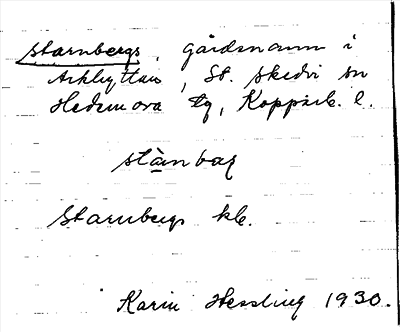 Starnbergs, gårdsnamn i
Arkhyttan, St. Skedvi sn
Hedemora tg, Kopparb. l.
stà̱nbaɼ
Starnbergs kb.
Karin Hessling 1930.